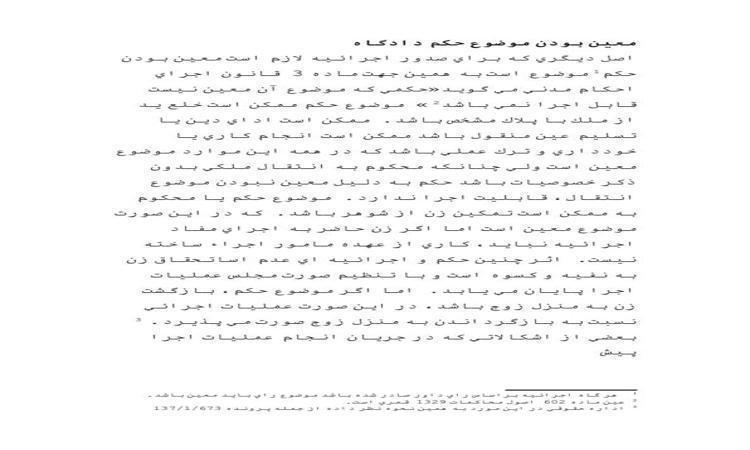 معين بودن موضوع حكم دادگاه
اصل ديگري كه براي صدور اجرائيه لازم است معين بودن
حكم1 موضوع است به همين جهت ماده 3 قانون اجراي
احكام مدني مي گويد«حكمي كه موضوع آن معين نيست
قابل اجرا نمي باشد2» موضوع حكم ممكن است خلع يد
از ملك با پلاك مشخص باشد. ممكن است اداي دين يا
تسليم عين منقول باشد ممكن است انجام كاري يا
خودداري و ترك عملي باشد كه در همه اين موارد موضوع
معين است ولي چنانكه محكوم به انتقال ملكي بدون
ذكر خصوصيات باشد حكم به دليل معين نبودن موضوع
انتقال، قابليت اجرا ندارد. موضوع حكم يا محكوم
به ممكن است تمكين زن از شوهر باشد. كه در اين صورت
موضوع معين است اما اگر زن حاضر به اجراي مفاد
اجرائيه نبايد، كاري از عهده مامور اجراء ساخته
نيست. اثر چنين حكم و اجرائيه اي عدم اساتحقاق زن
به نفيه و كسوه است و با تنظيم صورت مجلس عمليات
اجرا پايان مي يابد. اما اگر موضوع حكم، بازگشت
زن به منزل زوج باشد، در اين صورت عمليات اجرائي
نسبت به بازگرداندن به منزل زوج صورت مي پذيرد. 3
بعضي از اشكالاتي كه در جريان انجام عمليات اجرا
پيش
1 هرگاه اجرائيه بر اساس راي داور صادر شده باشد موضوع راي بايد معين باشد.
2 عين ماده 602 اصول محاكمات 1329 قمري است.
3 اداره حقوقي در اين مورد به همين نحوه نظر داده از جمله پرونده 137/1/673